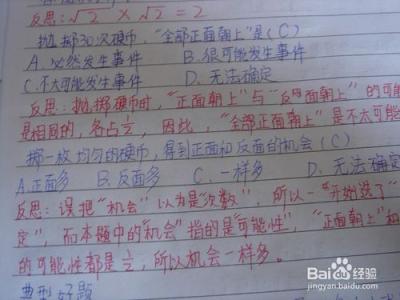 反思:√2 × √2 = 2
抛掷30次硬币,"全部正面朝上"是(C)
A.必然发生事件 B.很可能发生事件
C.不大可能发生事件 D.无法确定
反思:抛掷硬币时,"正面朝上"与"反面朝上"的可能
是相同的,各占½,因此,"全部正面朝上"是不太可能
掷一枚均匀的硬币,得到正面和反面的机会(C)
A.正面多 B.反面多 C.一样多 D.无法确定
反思:误把"机会"以为是"次数",所以一开始选了"
定",而本题中的"机会"指的是"可能性","正面朝上"和
的可能性都是½,所以机会一样多。
典型好题
Baidu经验
jingyan.baidu.com